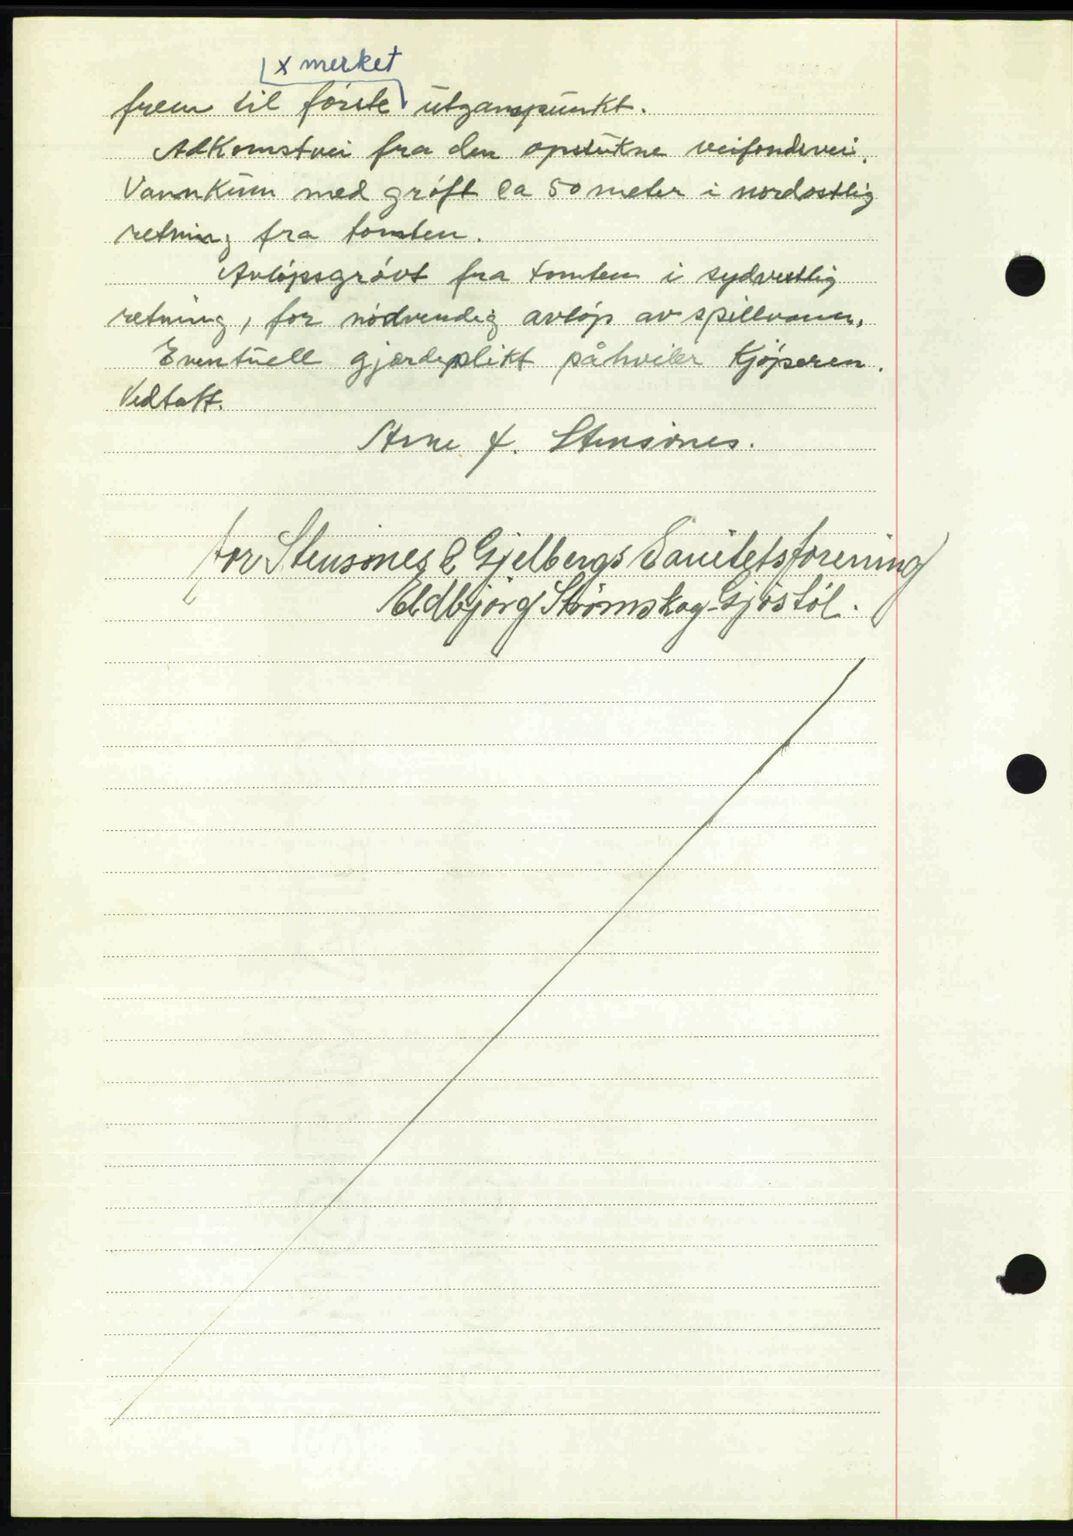 x merket
frem til förste utganspunkt.
Adkomstvei fra den opstukne veifondsvei.
Vannkum med gröft ca 50 meter i nordostlig
retning fra tomten.
Avlöpsgrövt fra tomten i sydvestlig
retning, for nödvendig avlöp av spillvann.
Eventuell gjerdeplikt påhviler Kjöperen.
Vedtatt.
Arne J. Stensönes.
for Stensönes & Gjelbergs Sanitetsforening
Eldbjörg Strömskag-Gjöstöl.